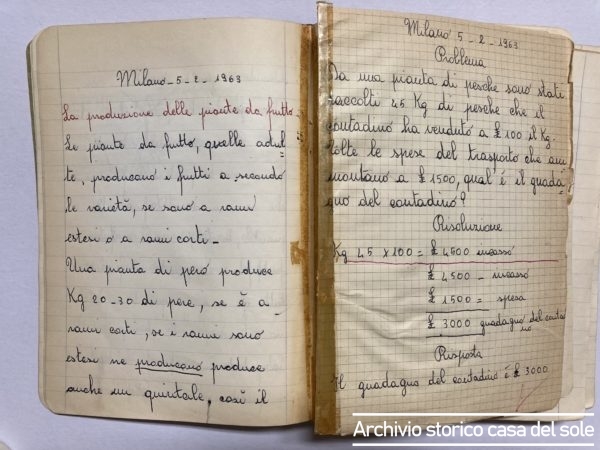 Milano - 5 - 2 - 1963
La produzione delle piante da frutto.
Le piante da frutto, quelle adul
te, producono i frutti a secondo
le varietà, se sono a rami
estesi o a rami corti -
Una pianta di pero produce
Kg 20-30 di pere, se è a
rami corti, se i rami sono
estesi ne producono produce
anche un quintale, così il
Milano 5 - 2 - 1963
Problema
Da una pianta di pesche sono stati
raccolti 45 Kg di pesche che il
contadino ha venduto a £ 100 il Kg.
Tolte le spese del trasporto che am
montano a £ 1500, qual'è il guada
gno del contadino?
Risoluzione
Kg 45 x 100 = £ 4500 incasso
£ 4500 - incasso
£ 1500 = spesa
£ 3000 guadagno del conta
no
Risposta
Il guadagno del contadino è £ 3000
Archivio storico casa del sole